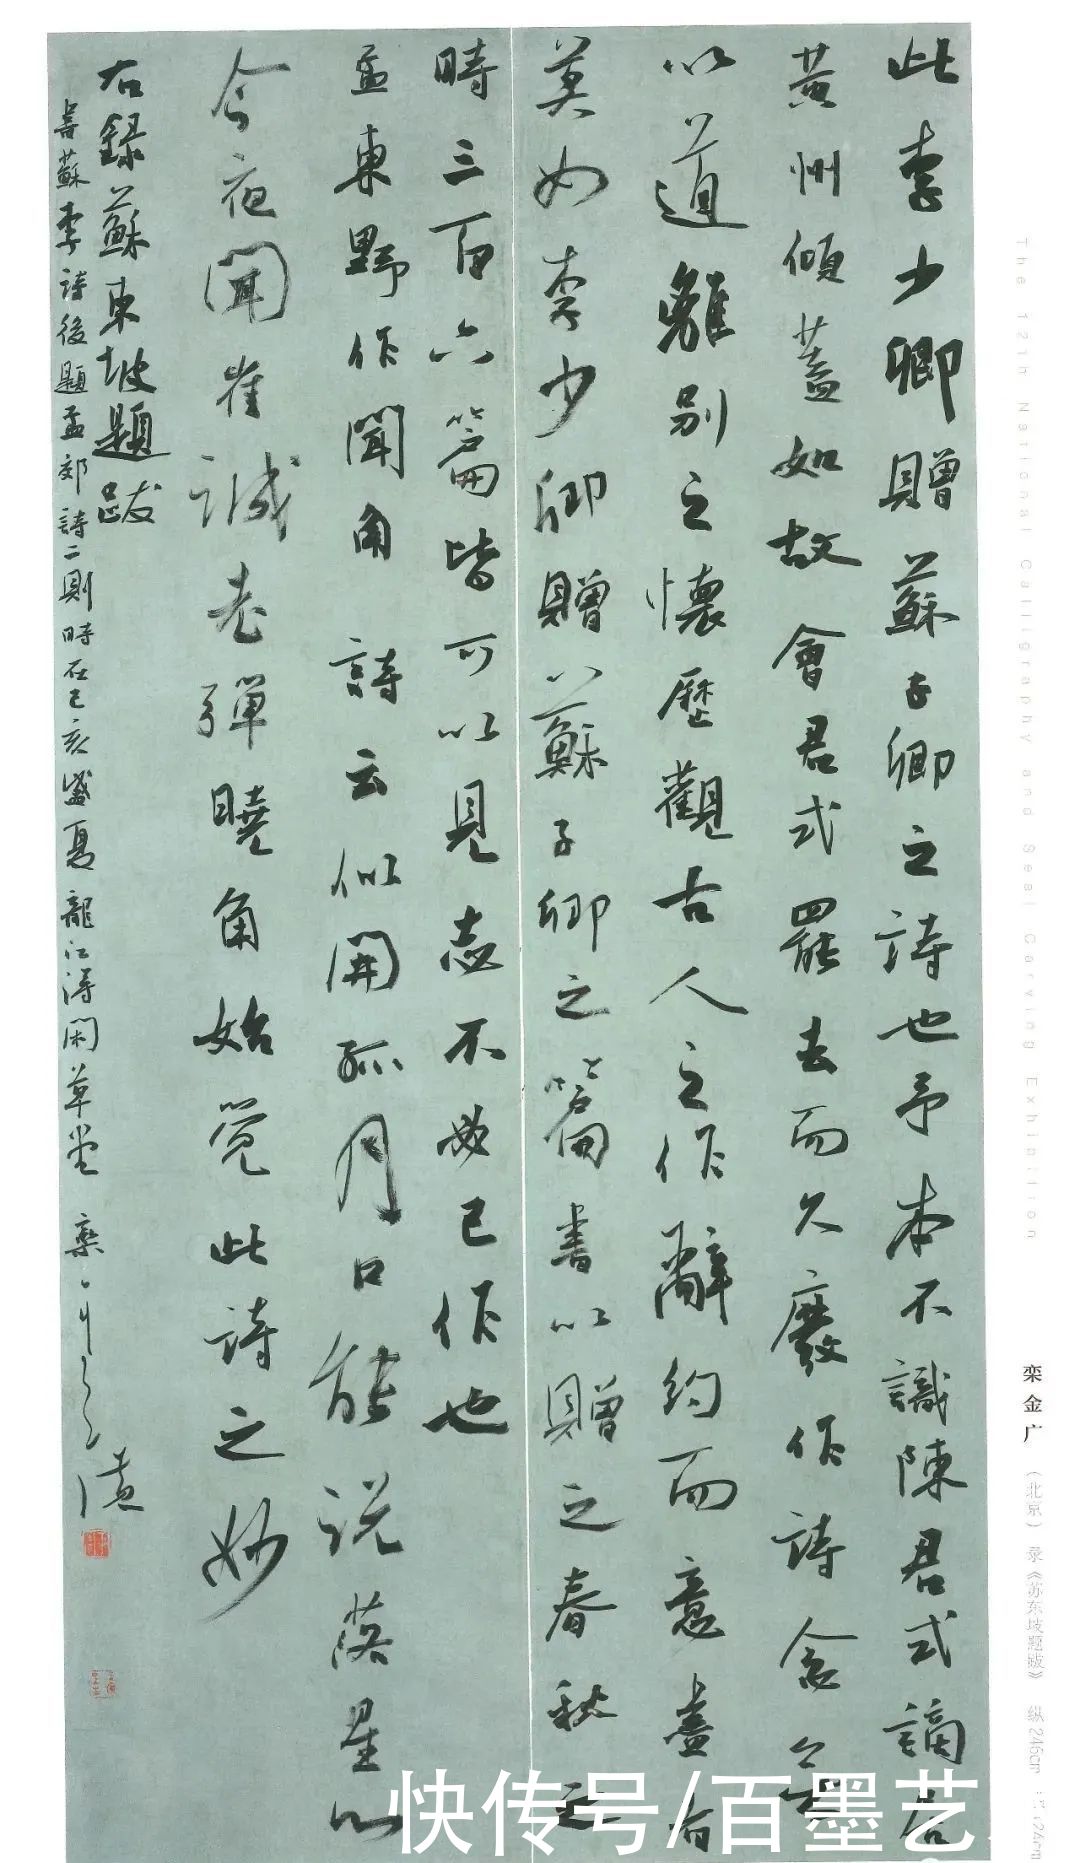 此李少卿贈蘇子卿之詩也予本不識陳君式謫居
黃州傾蓋如故會君式罷去而久廢作詩念無
以道離別之懷歷觀古人之作辭約而意盡者
莫如李少卿贈蘇子卿之篇書以贈之春秋之
時三百六篇皆可以見志不必己作也
孟東野作聞角詩云似開孤月口能説落星心
今夜聞崔誠老彈曉角始覺此詩之妙
右錄蘇東坡題跋
書蘇李詩後題孟郊詩二則時在己亥盛夏龍江淂閑草堂 欒
The 12th National Calligraphy and Seal Carving Exhibition
栾金广 (北京) 录《苏东坡题跋》 纵246cm 124cm
快传号/百墨艺